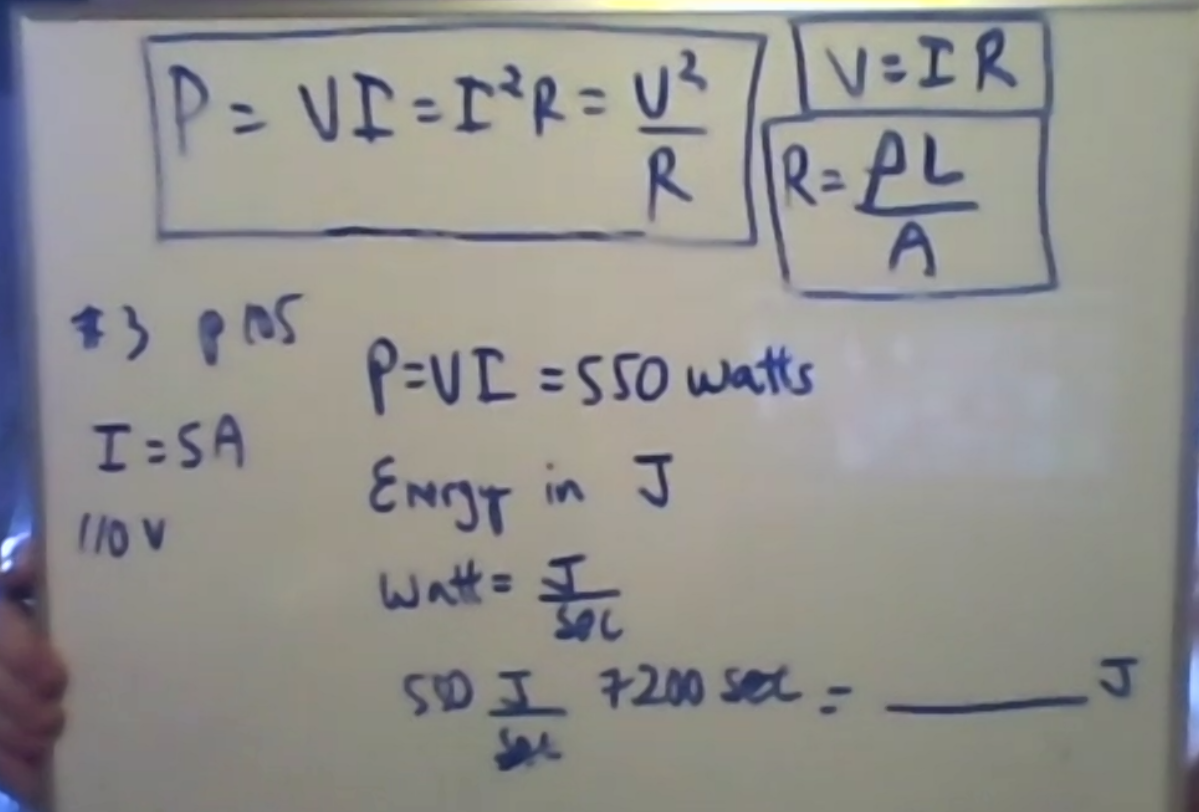 P = VI = I²R = V²/R
V = IR
R = ρL/A
#3 p 105
P = VI = 550 watts
I = 5A
Energy in J
110 V
Watt = J/sec
550 J/sec 7200 sec = ______ J